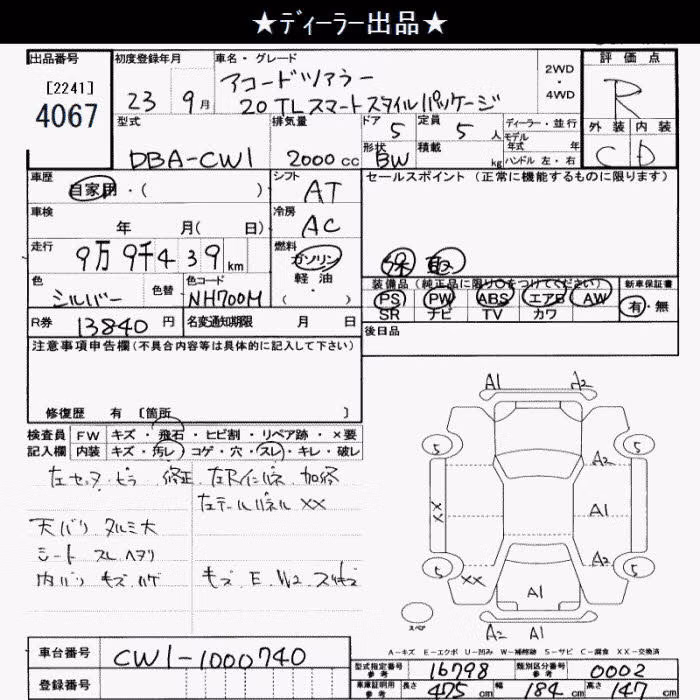 ★ディーラー出品★
出品番号 初度登録年月 車名・グレード 評価点
[2241] 23 9月 アコードツアラー 2WD・4WD R
4067 20TLスマートスタイルパッケージ
外装 内装
C D
型式 排気量 ドア 5 定員 5人 ディーラー・並行
モデル年式 年
DBA-CW1 2000cc 形状 BW 積載 kg ハンドル 左・右
車歴 自家用・( ) シフト AT セールスポイント (正常に機能するものに限ります)
車検 年 月( 日) 冷房 AC
走行 9万9千439km 燃料 ガソリン 保 取
軽油
・( )
色 シルバー 色替 色コード NH700M
装備品 (純正品に限り○をつけてください) 新車保証書
PS PW ABS エアB AW 有・無
SR ナビ TV カワ
R券 13840円 名変通知期限 月 日 後日品
注意事項申告欄(不具合内容等は具体的に記入して下さい)
修復歴 有 [箇所 ]
検査員 FW キズ・飛石・ヒビ割・リペア跡・×要
記入欄 内装 キズ・汚レ・コゲ・穴・スレ・キレ・破レ
左センタ・ピラ 修正 左Rインパネ 加修
左テールパネル XX
天バリ タルミ大
シート スレ ヘタリ
内バリ キズ ハゲ キズ E W2
A1 A2
5 5
A2
XX A1
A2
5 5
XX A1
スペア
A2 A1
A-キズ E-エクボ U-凹み W-補修跡 S-サビ C-腐食 XX-交換済
車台番号 CW1-1000740
登録番号
型式指定番号 参考 16798 類別区分番号 参考 0002
車庫証明用 参考 長さ 475cm 幅 184cm 高さ 147cm